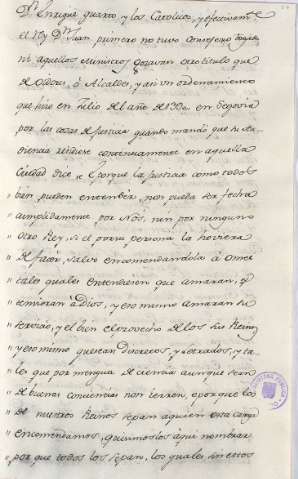 Dn. Enrique quarto, y los Catolicos, y efectivamte
el Rey Dn. Juan primero no tuvo consejeros
ni aquellos ministros gozavan otro titulo que
de Oidores, ó Alcaldes, y asi un ordenamiento
que hizo en Julio del año de 1390 en Segovia
por las cosas de justicia quando mandó que su Au-
diencia residiese continuamente en aquella
Ciudad dice: E porque la justicia como todos
" bien pueden entender, non pueda ser fecha
" cumplidamente por Nós, nin por ninguno
" otro Rey, si el por su persona la hoviera
" de facer, salvo encomendandola á omes
" tales quales entendieren que amaran, é
" temieran a Dios, y eso mismo amaran su
" servicio, y el bien é provecho de los sus Reinos
" y eso mismo que sean discretos, y letrados, y ta-
" les que por mengua de ciencia aunque sean
" de buenas conciencias non yerren, é porque los
" de nuestros Reinos sepan aquien esta carga
" encomendamos, quisimoslos aqui nombrar
" por que todos los sepan, los quales son estos